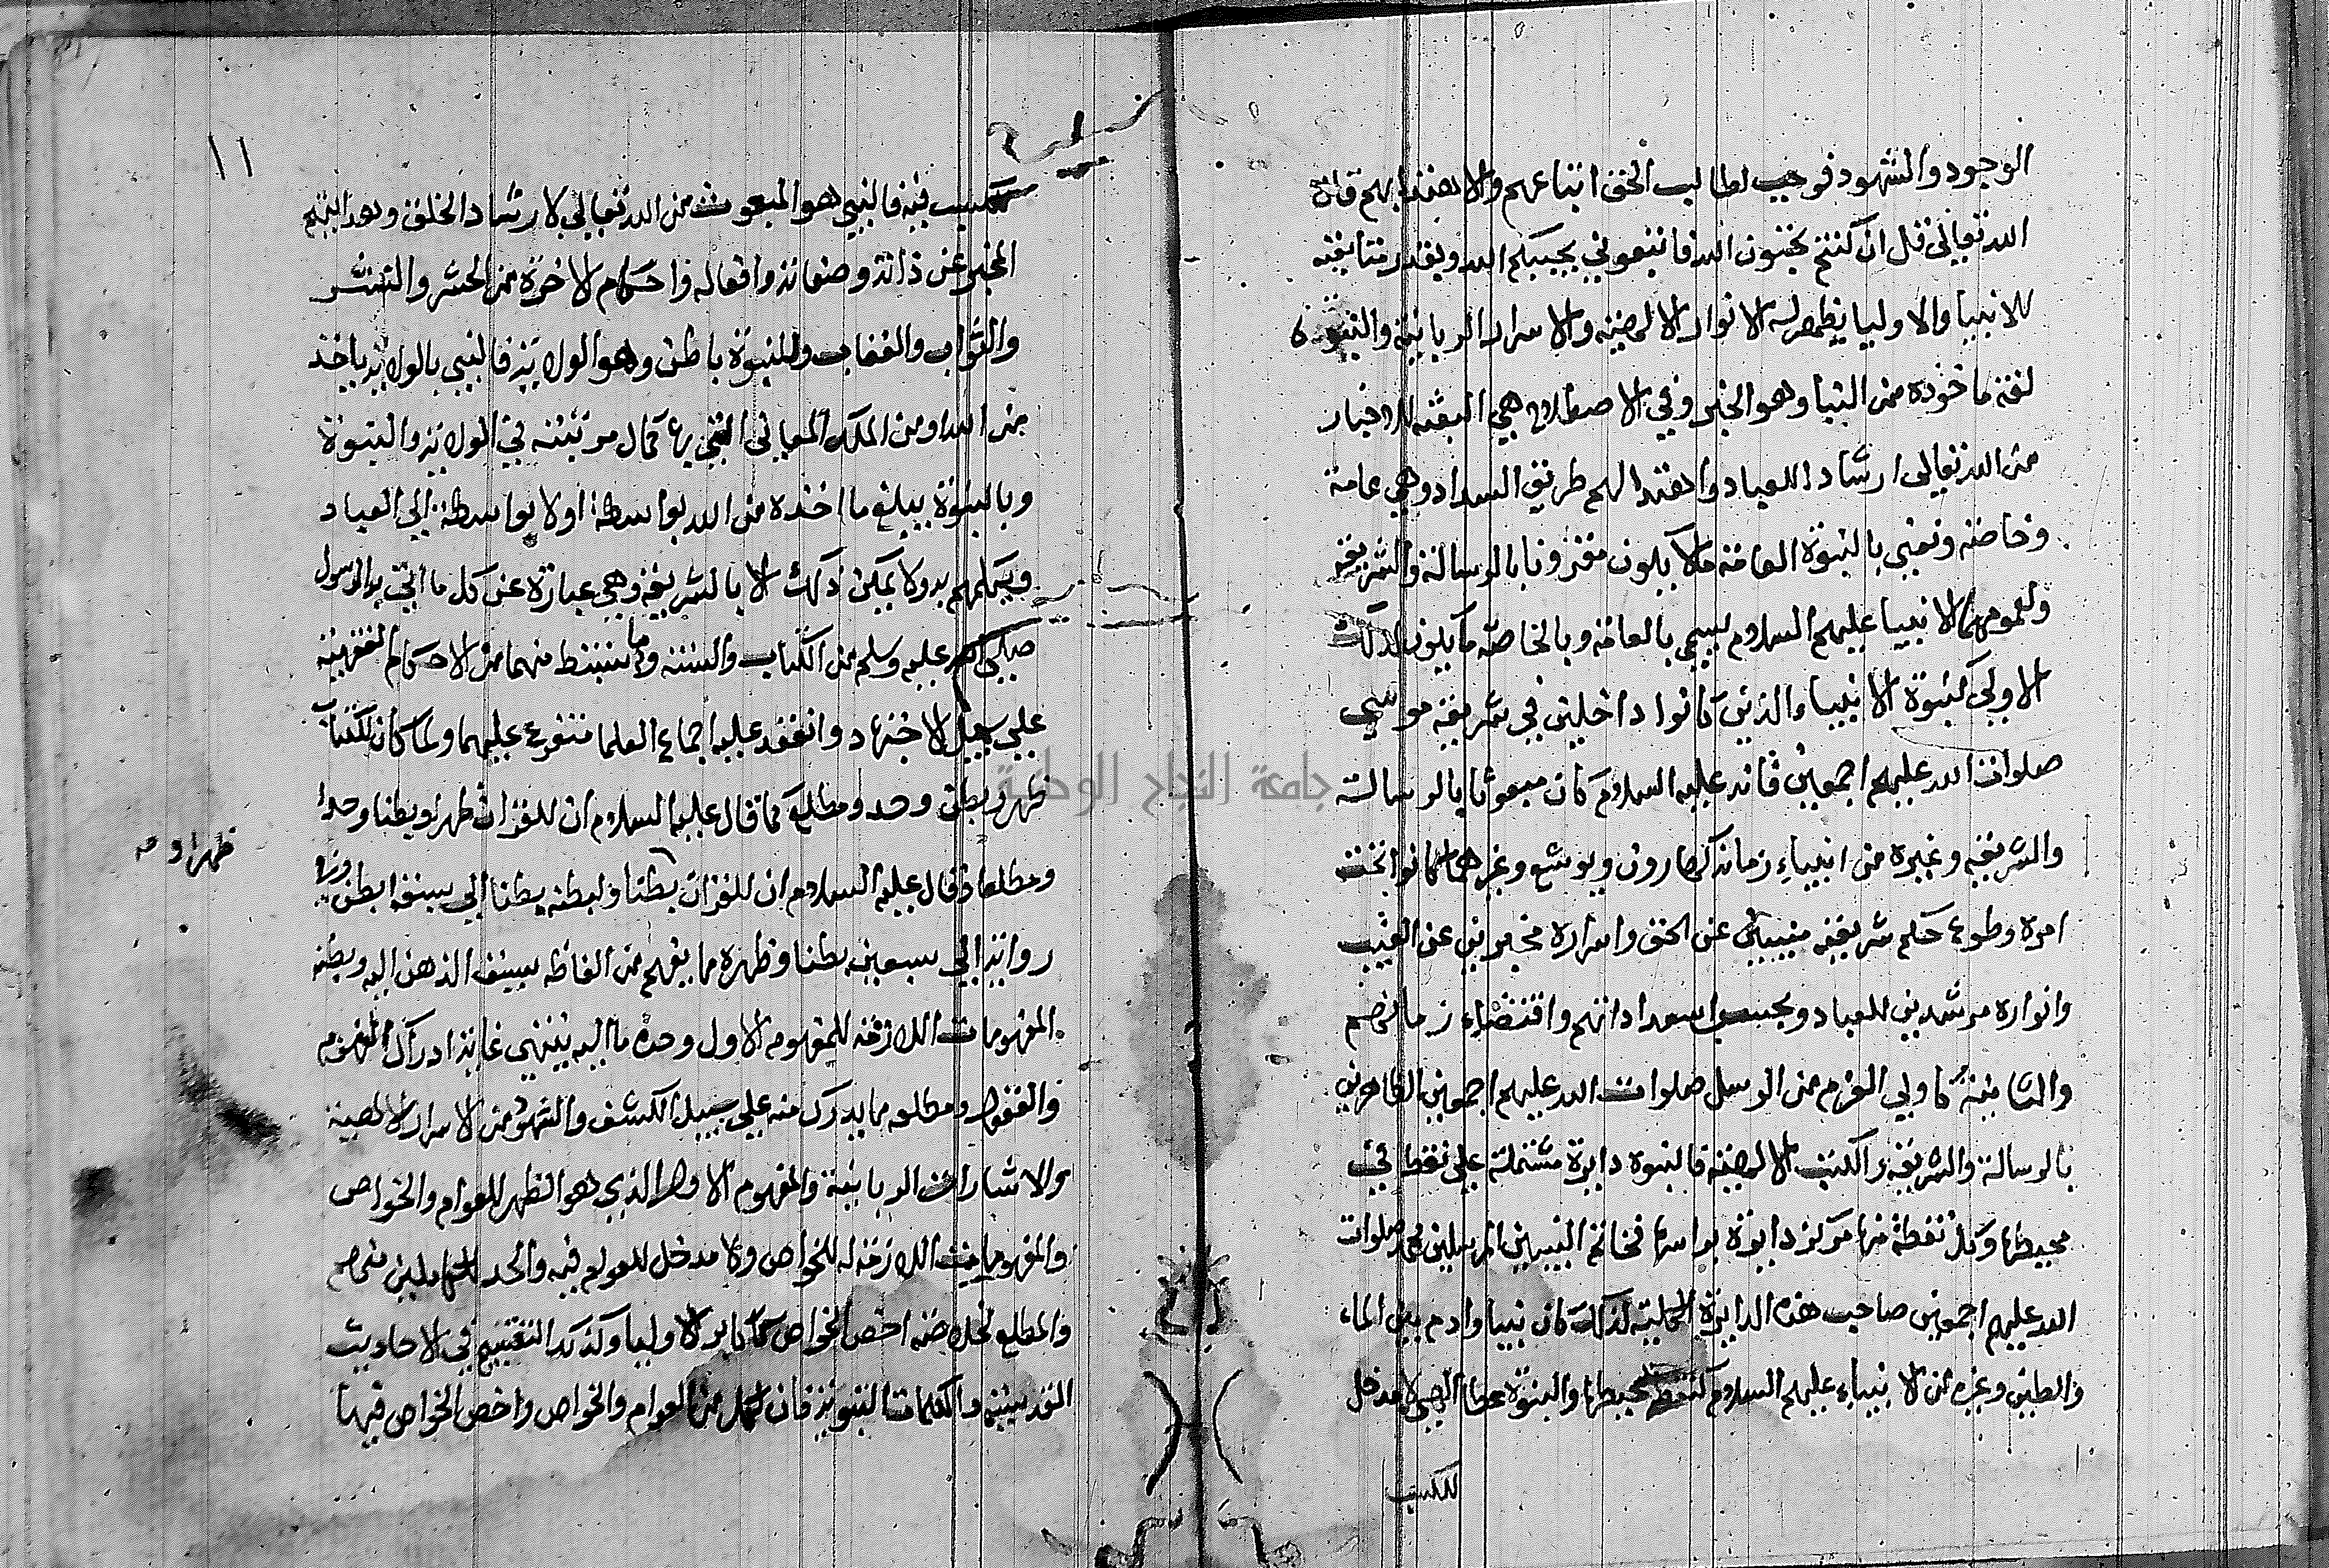 الوجود والشهود فوجب لطالب الحق اتباعهم والاهتدا بهم قال
الله تعالى قل ان كنتم تحبون الله فاتبعوني يحببكم الله وبقدر متابعته
للانبيا والاوليا يظهر له الانوار الالهية والاسرار الربانية والنبوة
لغة ماخوذه من النبا وهو الخبر وفي الاصطلاح هي البعثة للاخبار
من الله تعالى ارشاد اللعباد واهتدا لهم طريق السداد وهي عامة
وخاصة ونعني بالنبوة العامة ما لا يكون مقرونا بالرسالة والشريعة
ولعمومها الانبيا عليهم السلام يسمى بالعامة وبالخاصة ما يكون كذلك
الاولى كنبوة الانبياء الذين كانوا داخلين في شريعة موسى
صلوات الله عليهم اجمعين فانه عليه السلام كان مبعوثا بالرسالة
والشريعة وغيره من انبياء زمانه كهارون ويوشع وغيرهما كانوا تحت
امره وطوع حكم شريعته منبيين عن الحق واسراره مخبرين عن الغيب
وانواره مرشدين للعباد وبحسب استعداداتهم واقتضاء زمانهم
والثانية كاولي العزم من الرسل صلوات الله عليهم اجمعين الظاهرين
بالرسالة والشريعة والكتب الالهية فالنبوة دايرة مشتملة على نقط في
محيطها وكل نقطة منها مركز دايرة براسها فخاتم النبيين المرسلين محمد صلوات
الله عليهم اجمعين صاحب هذه الدايرة الكلية لذلك كان نبيا وادم بين الماء
والطين وغيره من الانبياء عليهم السلام كنقط محيطها والنبوة عطا الهي لا مدخل
للكسب
١١
للكسب فيه فالنبي هو المبعوث من الله تعالى لارشاد الخلق وهدايتهم
المخبر عن ذاته وصفاته وافعاله واحكام الاخرة من الحشر والنشر
والثواب والعقاب وللنبوة باطن وهو الولاية فالنبي بالولاية ياخذ
من الله او من الملك المعاني التي بها كمال مرتبته في الولاية والنبوة
وبالنبوة يبلغ ما اخذه من الله بواسطة او لا بواسطة الى العباد
ويكملهم به ولا يمكن ذلك الا بالشريعة وهي عبارة عن كل ما اتى به الرسول
صلى الله عليه وسلم من الكتاب والسنة وما يستنبط منهما من الاحكام الفقهية
على سبيل الاجتهاد وانعقد عليه اجماع العلما متفرع عليهما ولما كان للكتاب
ظهر وبطن وحد ومطلع كما قال عليه السلام ان للقران ظهرا وبطنا وحدا
ظهرا و
ومطلعا وقال عليه السلام ان للقران بطنا ولبطنه بطنا الى سبعة ابطن وفي
رواية الى سبعين بطنا وظهره ما يفهم من الفاظه يسبق الذهن اليه وبطنه
المفهومات اللازمة للمفهوم الاول وحده ما اليه ينتهي غاية ادراك الفهوم
والعقول ومطلعه ما يدرك منه على سبيل الكشف والشهود من الاسرار الالهية
والاشارات الربانية والمفهوم الاول الذي هو الظهر للعوام والخواص
والمفهومات اللازمة له للخواص ولا مدخل للعوام فيه والحد للكاملين منهم
والمطلع لخلاصة اخص الخواص كاكابر الاوليا وكذلك التقسيم في الاحاديث
القدسية والكلمات النبوية فان لكل من العوام والخواص واخص الخواص فيها